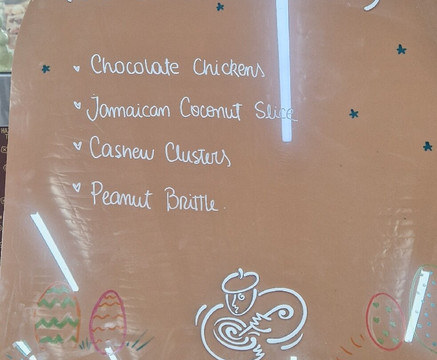 Chocolate Chickens
Jamaican Coconut Slice
Cashew Clusters
Peanut Brittle.